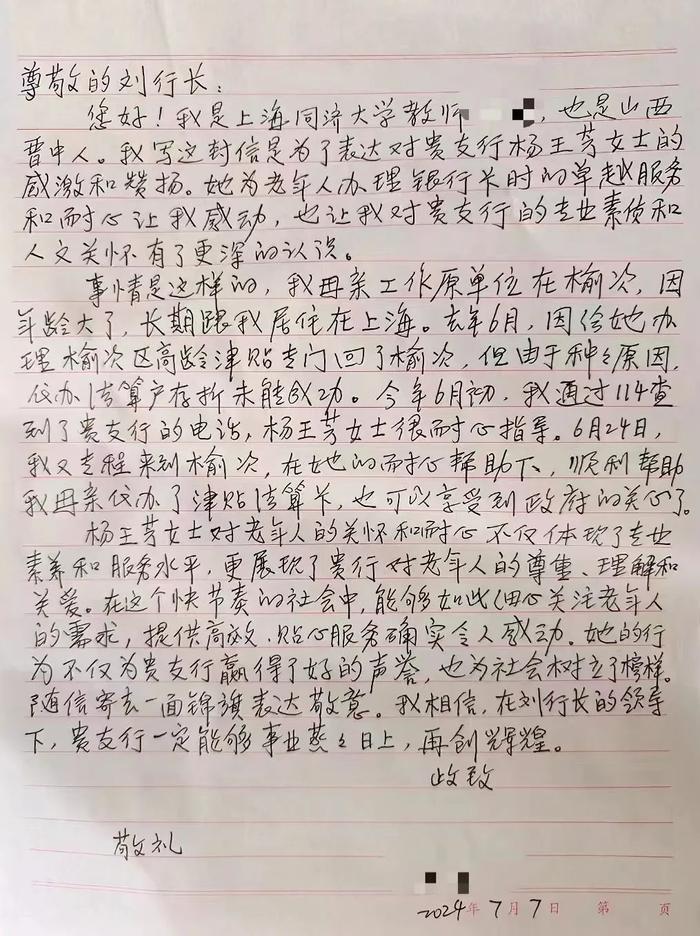 尊敬的刘行长：
您好！我是上海同济大学教师，也是山西
晋中人。我写这封信是为了表达对贵支行杨王芳女士的
感激和赞扬。她为老年人办理银行卡时的卓越服务
和耐心让我感动，也让我对贵支行的专业素质和
人文关怀有了更深的认识。
事情是这样的，我母亲工作原单位在榆次，因
年龄大了，长期跟我居住在上海。去年6月，因给她办
理榆次区高龄津贴专门回了榆次，但由于种种原因，
代办结算户存折未能成功。今年6月初，我通过114查
到了贵支行的电话，杨王芳女士很耐心指导。6月24日，
我又专程来到榆次，在她的耐心帮助下，顺利帮助
我母亲代办了津贴结算卡，也可以享受到政府的关心了。
杨王芳女士对老年人的关怀和耐心不仅体现了专业
素养和服务水平，更展现了贵行对老年人的尊重、理解和
关爱。在这个快节奏的社会中，能够如此细心关注老年人
的需求，提供高效、贴心服务确实令人感动。她的行
为不仅为贵支行赢得了好的声誉，也为社会树立了榜样。
随信寄去一面锦旗表达敬意。我相信，在刘行长的领导
下，贵支行一定能够事业蒸蒸日上，再创辉煌。
此致
敬礼
2024年7月7日 第 页